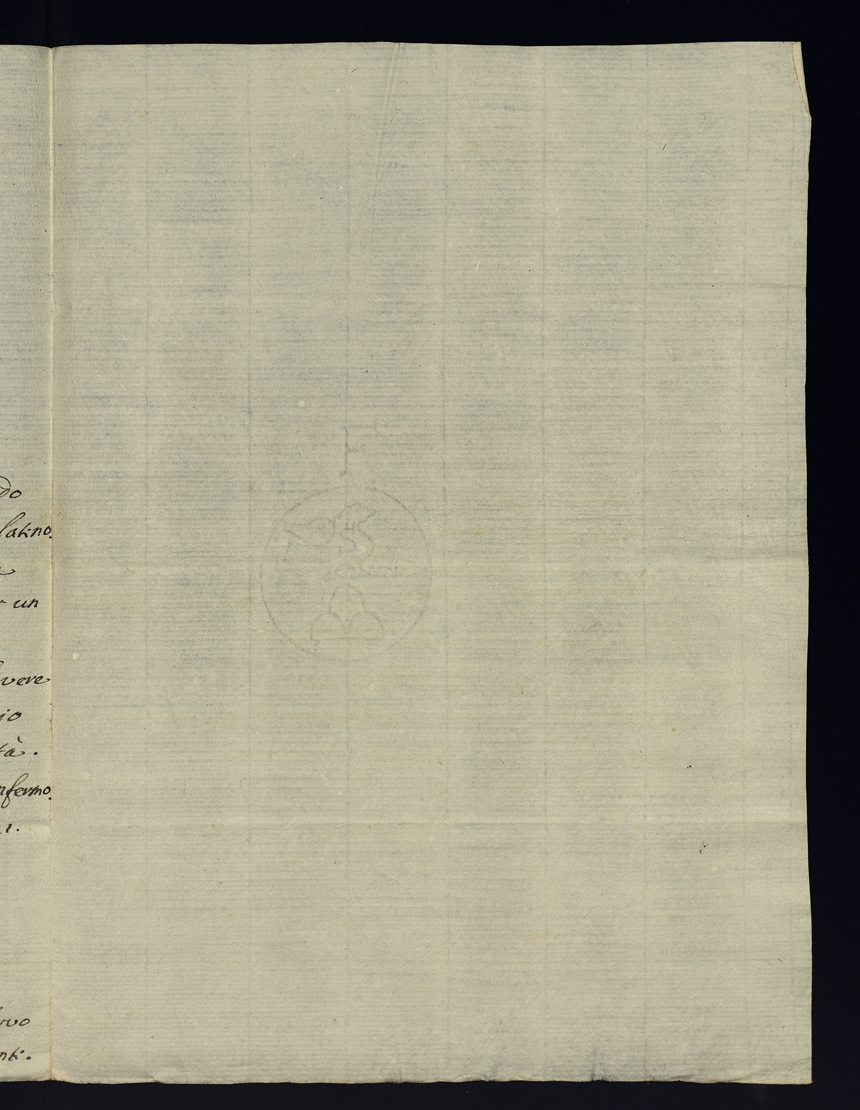 do
latino.
un
vere
io
tà.
nfermo.
i.
vo
nti.